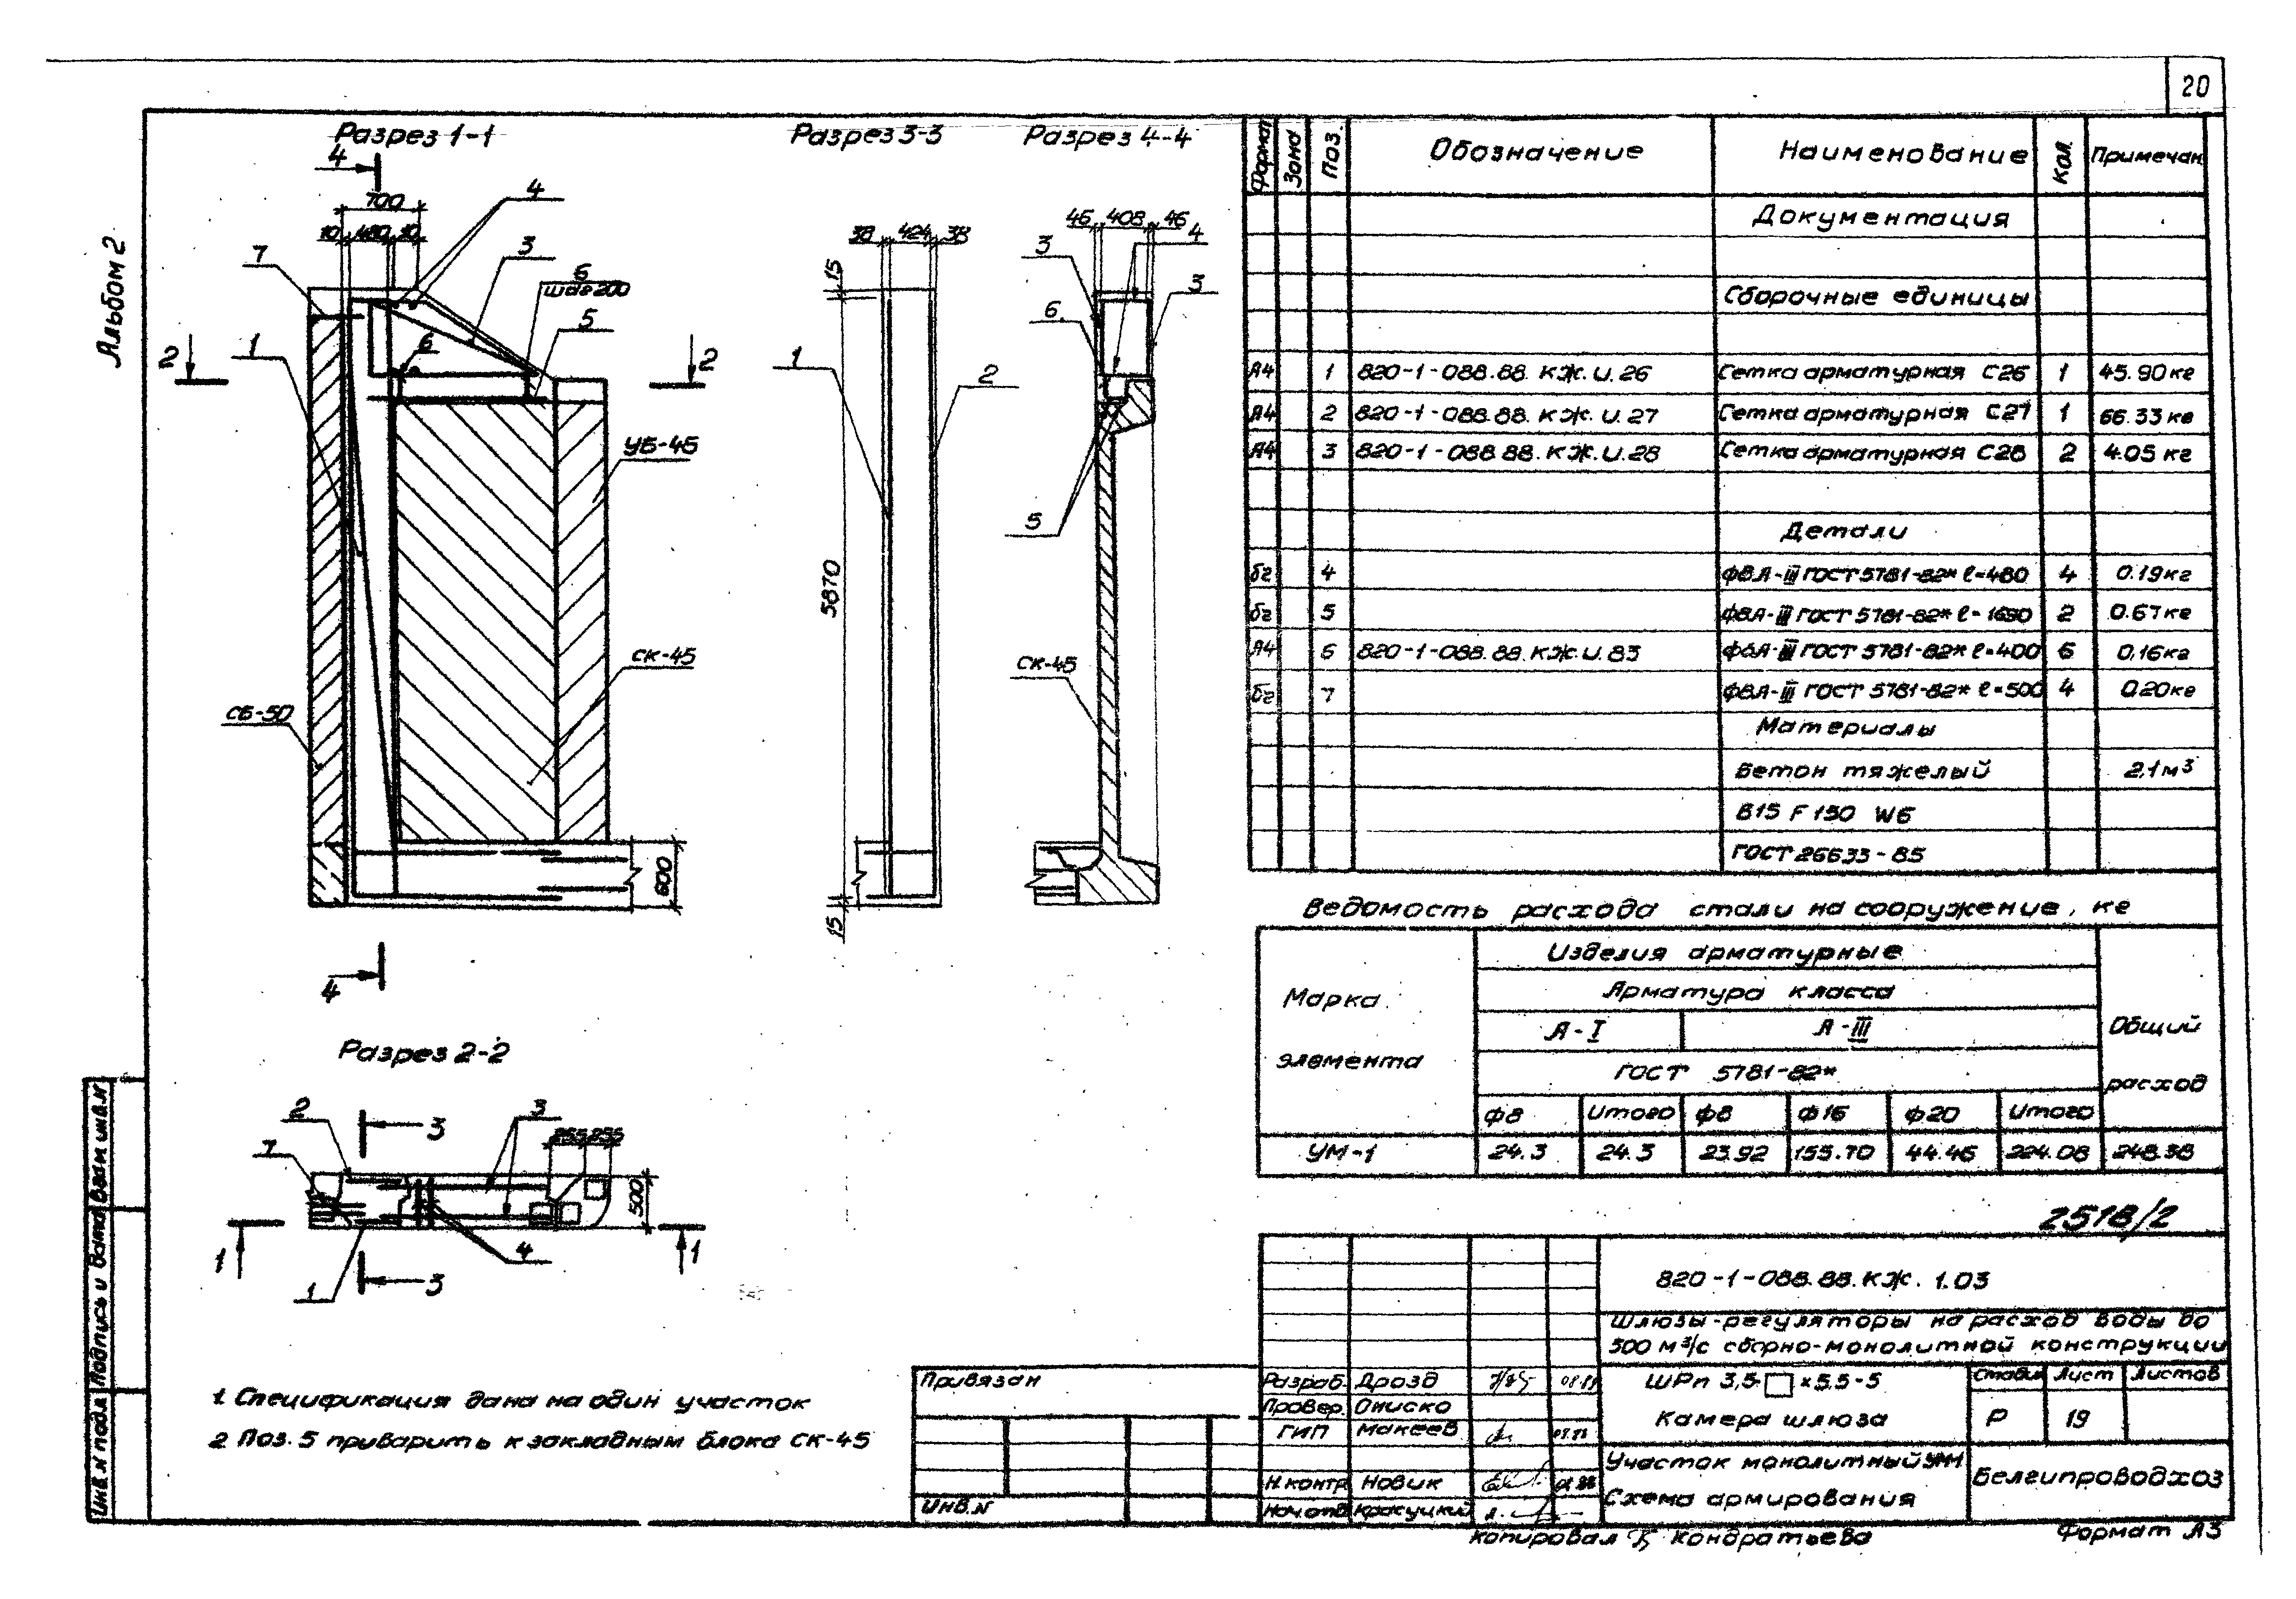 20
Альбом 2
Разрез 1-1
4
700
10 480 10
7
4
3
6
шаг 200
5
1
6
2
2
УБ-45
СК-45
СБ-50
600
4
Разрез 3-3
38 424 38
15
1
2
5870
15
Разрез 4-4
46 408 46
4
3
3
6
5
СК-45
Разрез 2-2
2
3
3
255 255
7
500
1
1
4
1
3
1. Спецификация дана на один участок
2 Поз. 5 приварить к закладным блока СК-45
Формат Зона Поз. Обозначение Наименование Кол. Примечан.
Документация
Сборочные единицы
А4 1 820-1-088.88. КЖ.И.26 Сетка арматурная С26 1 45.90 кг
А4 2 820-1-088.88. КЖ.И.27 Сетка арматурная С27 1 66.33 кг
А4 3 820-1-088.88. КЖ.И.28 Сетка арматурная С28 2 4.05 кг
Детали
бг 4 ф8А-III ГОСТ 5781-82* l=480 4 0.19 кг
бг 5 ф8А-III ГОСТ 5781-82* l=1690 2 0.67 кг
А4 6 820-1-088.88. КЖ.И.83 ф8А-III ГОСТ 5781-82* l=400 6 0,16 кг
бг 7 ф8А-III ГОСТ 5781-82* l=500 4 0.20 кг
Материалы
Бетон тяжелый 2.1 м³
В15 F150 W6
ГОСТ 26633-85
Ведомость расхода стали на сооружение, кг
Марка элемента Изделия арматурные Общий расход
Арматура класса
А-I А-III
ГОСТ 5781-82*
ф8 Итого ф8 ф16 ф20 Итого
УМ-1 24.3 24.3 23.92 155.70 44.46 224.08 248.38
2518/2
820-1-088.88. КЖ. 1.03
Шлюзы-регуляторы на расход воды до
500 м³/с сборно-монолитной конструкции
ШРп 3,5-□×5.5-5
Камера шлюза
Стадия Лист Листов
Р 19
Участок монолитный УМ1
Схема армирования
Белгипроводхоз
Разраб. Дрозд
Провер. Ониско
ГИП Макеев
Н.контр Новик
Нач.отд Красуцкий
Привязан
Инв.N
Инв.N подл. Подпись и дата Взам инв.N
Копировал Кондратьева
Формат А3